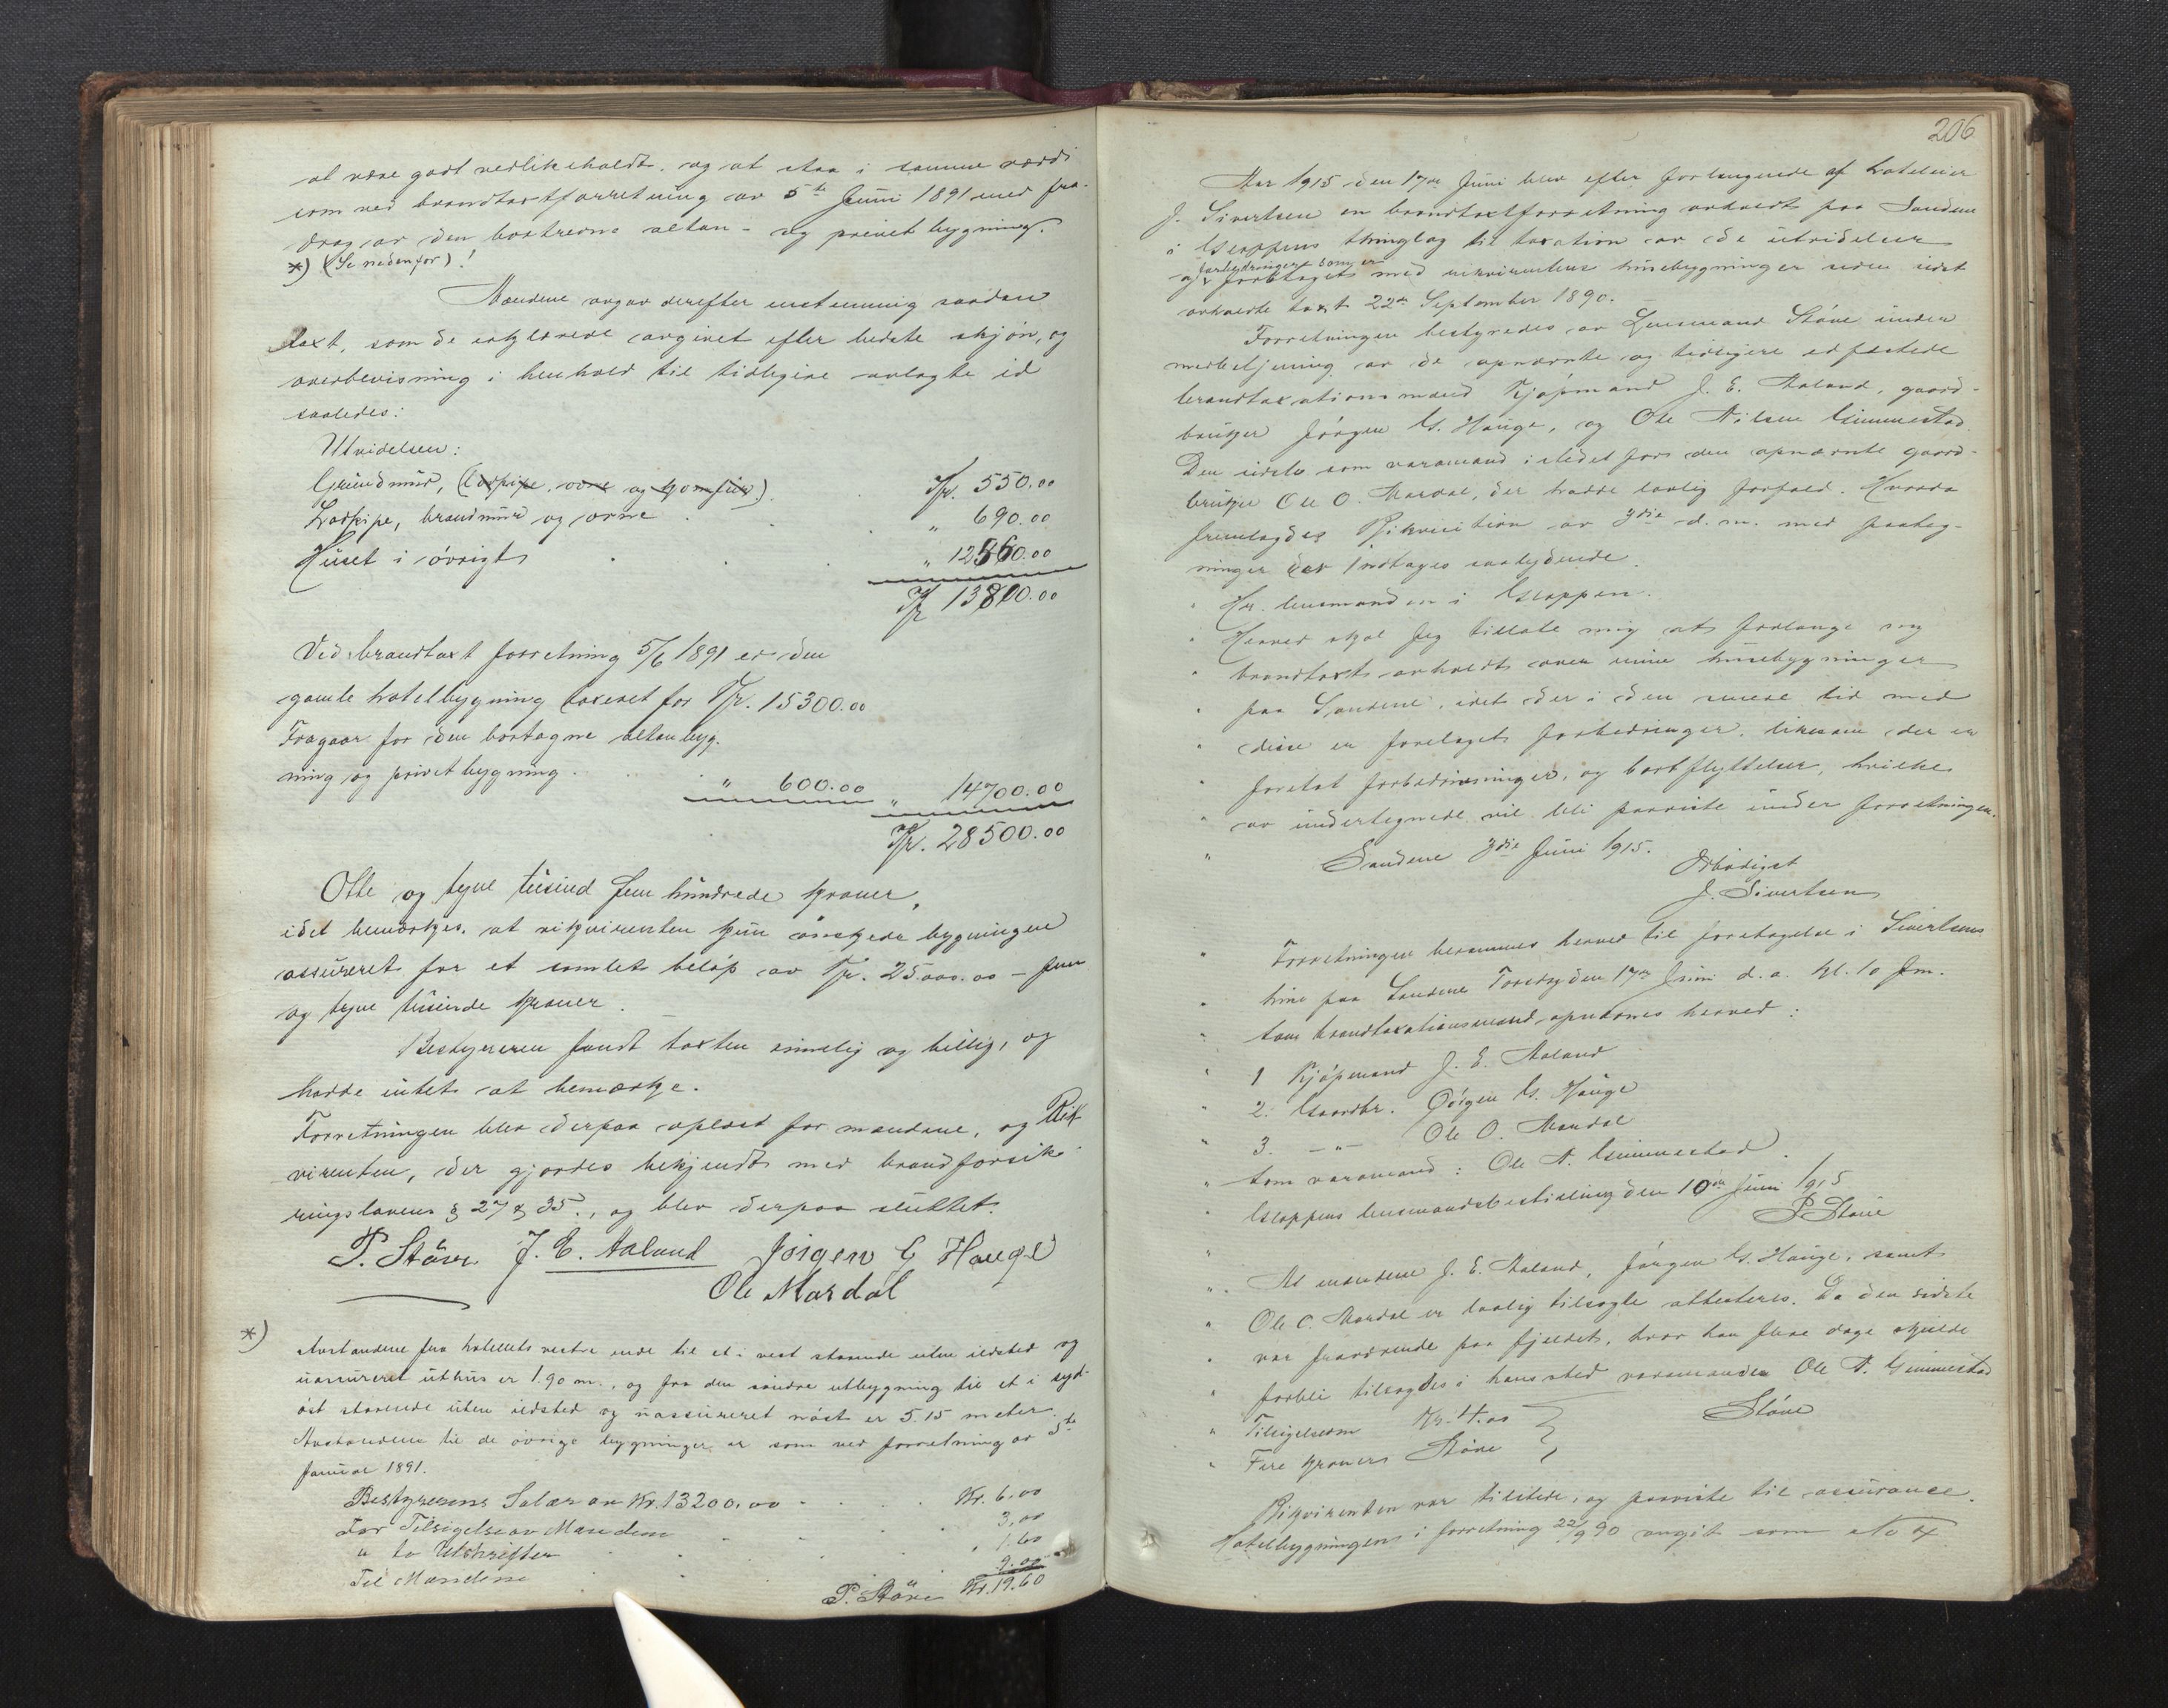 at være godt vedlikeholdt, og at staa i samme værdi
som ved brandtaxtforretning av 5te Juni 1891 med fra-
drag av den bortrevne altan- og privet bygning.
*) (Se nedenfor)!
Mændene avgav derefter enstemmig saadan
taxt, som de erklærede avgivet efter bedste skjøn, og
overbevisning i henhold til tidligere avlagte ed
saaledes:
Utvidelsen:
Grundmur, (Lodpipe, ovne og komfur). Kr. 550.00
Lodpipe, brandmur og ovne " 690.00
Huset i øvrigt " 12560.00
Kr 13800.00
Ved brandtaxt forretning 5/6 1891 er den
gamle hotelbygning taxeret for Kr. 15300.00
Fragaar for den borttagne altanbyg-
ning og privetbygning. " 600.00 " 14700.00
Kr. 28500.00
Otte og tyve tusind fem hundrede kroner,
idet bemærkes, at rikvirenten kun ønskede bygningen
assureret for et samlet beløp av Kr. 25.000.00 – fem
og tyve tusinde kroner.
Bestyreren fandt taxten rimelig og billig, og
hadde intet at bemærke.
Forretningen blev derpaa oplæst for mændene, og Rik
virenten, der gjordes bekjendt med brandforsik-
ringslovens § 27 & 35., og blev derpaa sluttet
P. Støve J. E. Aaland Jørgen G Hauge
Ole Mardal
*) Avstandene fra hotellets vestre ende til et i vest staaende uten ildsted og
uassureret uthus er 1.90 m., og fra den søndre utbygning til et i syd-
øst staaende uten ildsted og uassureret nøst er 5.15 meter.
Avstandene til de øvrige bygninger er som ved forretning av 5te
Januar 1891.
Bestyrerens Salær av Kr. 13200.00 Kr. 6.00
For Tilsigelse av Mændene 3.00
" to Utskrifter " 1.60
Til Mændene 9.00
P. Støve Kr. 19.60
206
Aar 1915 den 17de Juni blev efter forlangende af hoteleier
J. Sivertsen en brandtaxtforretning avholdt paa Sandene
i Gloppens thinglag til taxation av de utvidelser
forbedringer som er
og foretaget med rekvirentens husebygninger siden sidst
avholdte taxt 22de September 1890.
Forretningen bestyredes av Lensmand Støve under
medbetjening av de opnævnte og tidligere edfæstede
brandtaxationsmænd Kjøpmand J. E. Aaland, gaard-
bruker Jørgen G. Hauge, og Ole Nilsen Gimmestad.
Den sidste som varamand istedet for den opnævnte gaard-
bruker Ole O. Mardal, der hadde lovlig forfald. Hvorda
fremlagdes Rikvisition av 3die d.m. med paateg-
ninger der indtages saalydende.
" Hr. lensmanden i Gloppen.
" Herved skal jeg tillate mig at forlange ny
" brandtaxt avholdt over mine husebygninger
" paa Sandene, idet der i den senere tid med
" disse er foretaget forbedringer, likesom der er
" foretat forbedringer, og bortflyttelser, hvilke
" av undertegnede vil bli paaviste under forretningen.
" Sandene 3die Juni 1915.
Ærbødigst
J. Sivertsen
" Forretningen berammes herved til foretagelse i Sivertsens
" hus paa Sandene Torsdag den 17de Juni d.a. kl. 10 fm.
" Som brandtaxationsmænd opnævnes herved:
" 1 Kjøpmand J. E. Aaland
" 2. Gaardbr. Jørgen G. Hauge
" 3. –"– Ole O. Mardal
" Som varamand: Ole N. Gimmestad.
" Gloppens lensmandsbestilling den 10de Juni 1915
" P. Støve
" At mændene J. E. Aaland, Jørgen G. Hauge, samt
" Ole O. Mardal er lovlig tilsagte attesteres. Da den sidste
" var fraværende paa fjeldet, hvor han flere dage skulde
" forbli tilsagdes i hans sted varamanden Ole N. Gimmestad
" Tilsigelsesm Kr. 4.00 Støve
" Fire kroner Støve
Rikvirenten var tilstede, og paaviste til assurance.
Hotelbygningen i forretning 22/9 90 angit som No